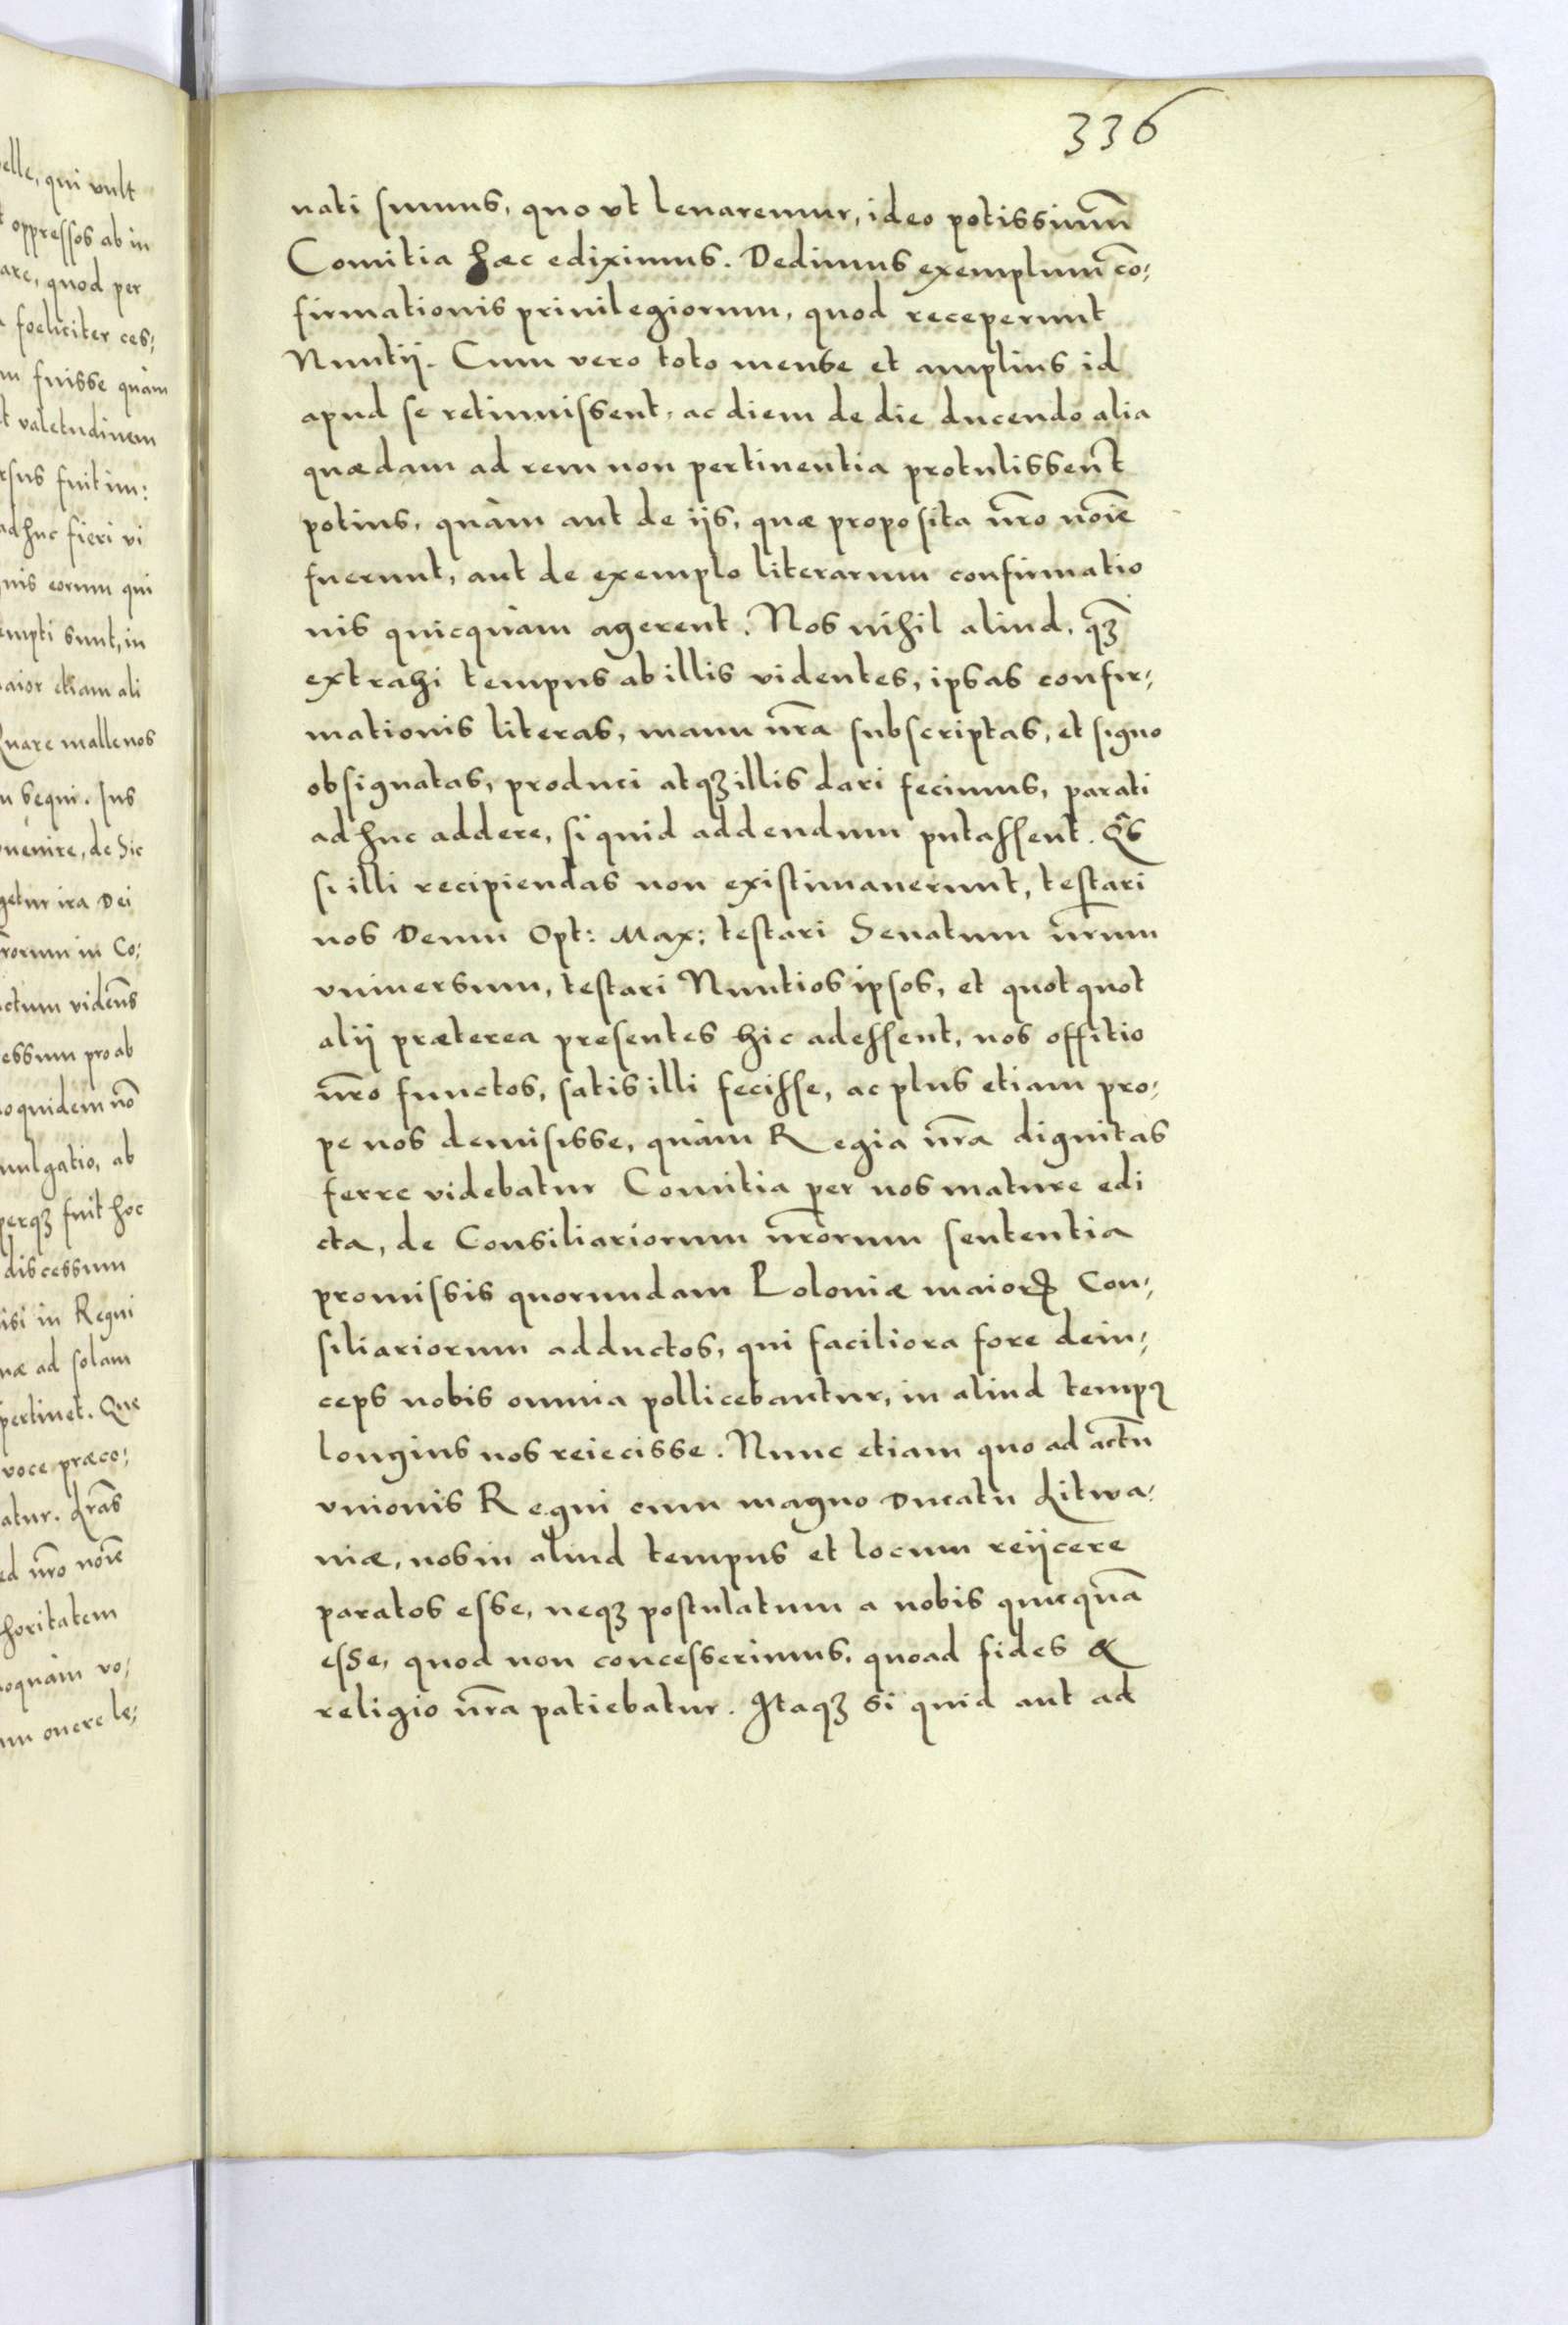 elle, qui vult
oppressos ab in
are, quod per
foeliciter ces:
m fuisse quàm
t valetudinem
rsus fuit im:
adhuc fieri vi
nis eorum qui
empti sunt, in
aior etiam ali
Quare malle nos
n sequi. Ius
uenire, de hic
getur ira Dei
rorum in Co:
ctum videns
essum pro ab
o quidem nō
ulgatio, ab
perqȝ fuit hoc
discessum
isi in Regni
næ ad solam
pertinet. Que
voce præco:
atur. Lrãs
ed nr̃o noĩe
horitatem
oquàm vo:
um onere le:
336
nati sumus, quo vt leuaremur, ideo potissimum̃
Comitia hæc ediximus. Dedimus exemplum cõ:
firmationis priuilegiorum, quod receperunt
Nuntij. Cum vero toto mense et amplius id
apud se retinuissent, ac diem de die ducendo alia
quædam ad rem non pertinentia protulissent
potius, quàm aut de ijs, quæ proposita nr̃o noĩe
fuerunt, aut de exemplo literarum confirmatio
nis quicquàm agerent. Nos nihil aliud, qȝ̃
extrahi tempus ab illis videntes, ipsas confir:
mationis literas, manu nr̃a subscriptas, et signo
obsignatas, produci atqȝ illis dari fecimus, parati
adhuc addere, si quid addendum putassent. Q̃s
si illi recipiendas non existimauerunt, testari
nos Deum Opt: Max: testari Senatum nr̃um
vniuersum, testari Nuntios ipsos, et quotquot
alij præterea presentes hic adessent, nos offitio
nr̃o functos, satis illi fecisse, ac plus etiam pro:
pe nos demisisse, quàm Regia nr̃a dignitas
ferre videbatur Comitia per nos mature edi
cta, de Consiliariorum nr̃orum sententia
promissis quorundam Poloniæ maiorꝝ Con:
siliariorum adductos, qui faciliora fore dein:
ceps nobis omnia pollicebantur, in aliud tempꝰ
longius nos reiecisse. Nunc etiam quo ad actũ
vnionis Regni cum magno Ducatu Litwa:
niæ, nos in aliud tempus et locum reijcere
paratos esse, neqȝ postulatum a nobis quicquã
esse, quod non concesserimus, quoad fides &
religio nr̃a patiebatur. Itaqȝ si quid aut ad